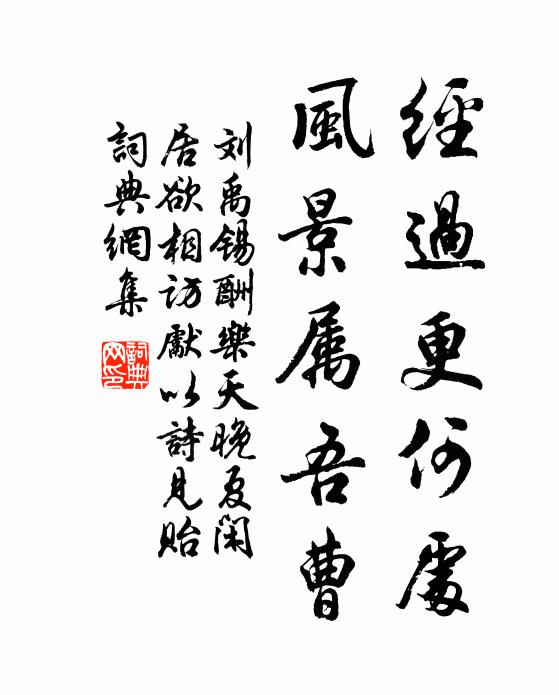 經過更何處
風景属吾曹
刘禹锡酬樂天晚夏闲
居欲相访獻以詩見貽
詞典網集
詞典網印